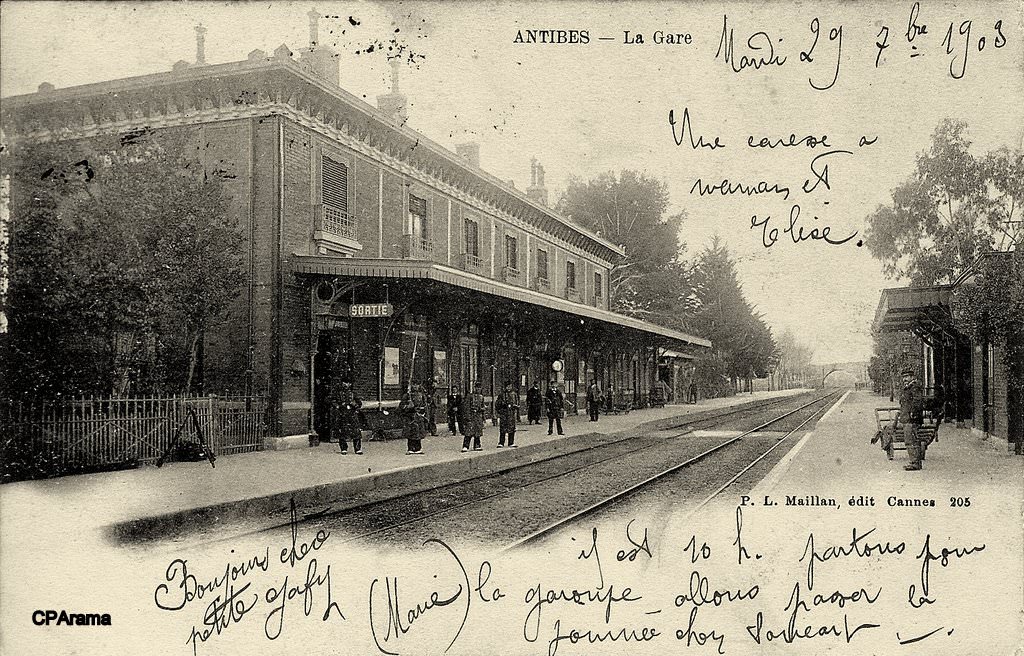 ANTIBES — La Gare
Mardi 29 7bre 1903
Une caresse a
maman et
Elise.
SORTIE
P. L. Maillan, édit Cannes 205
Bonjour chee
petite
(Marie)
il est 10 h. partons pour
la garoupe allons passer la
journée chez
CPArama